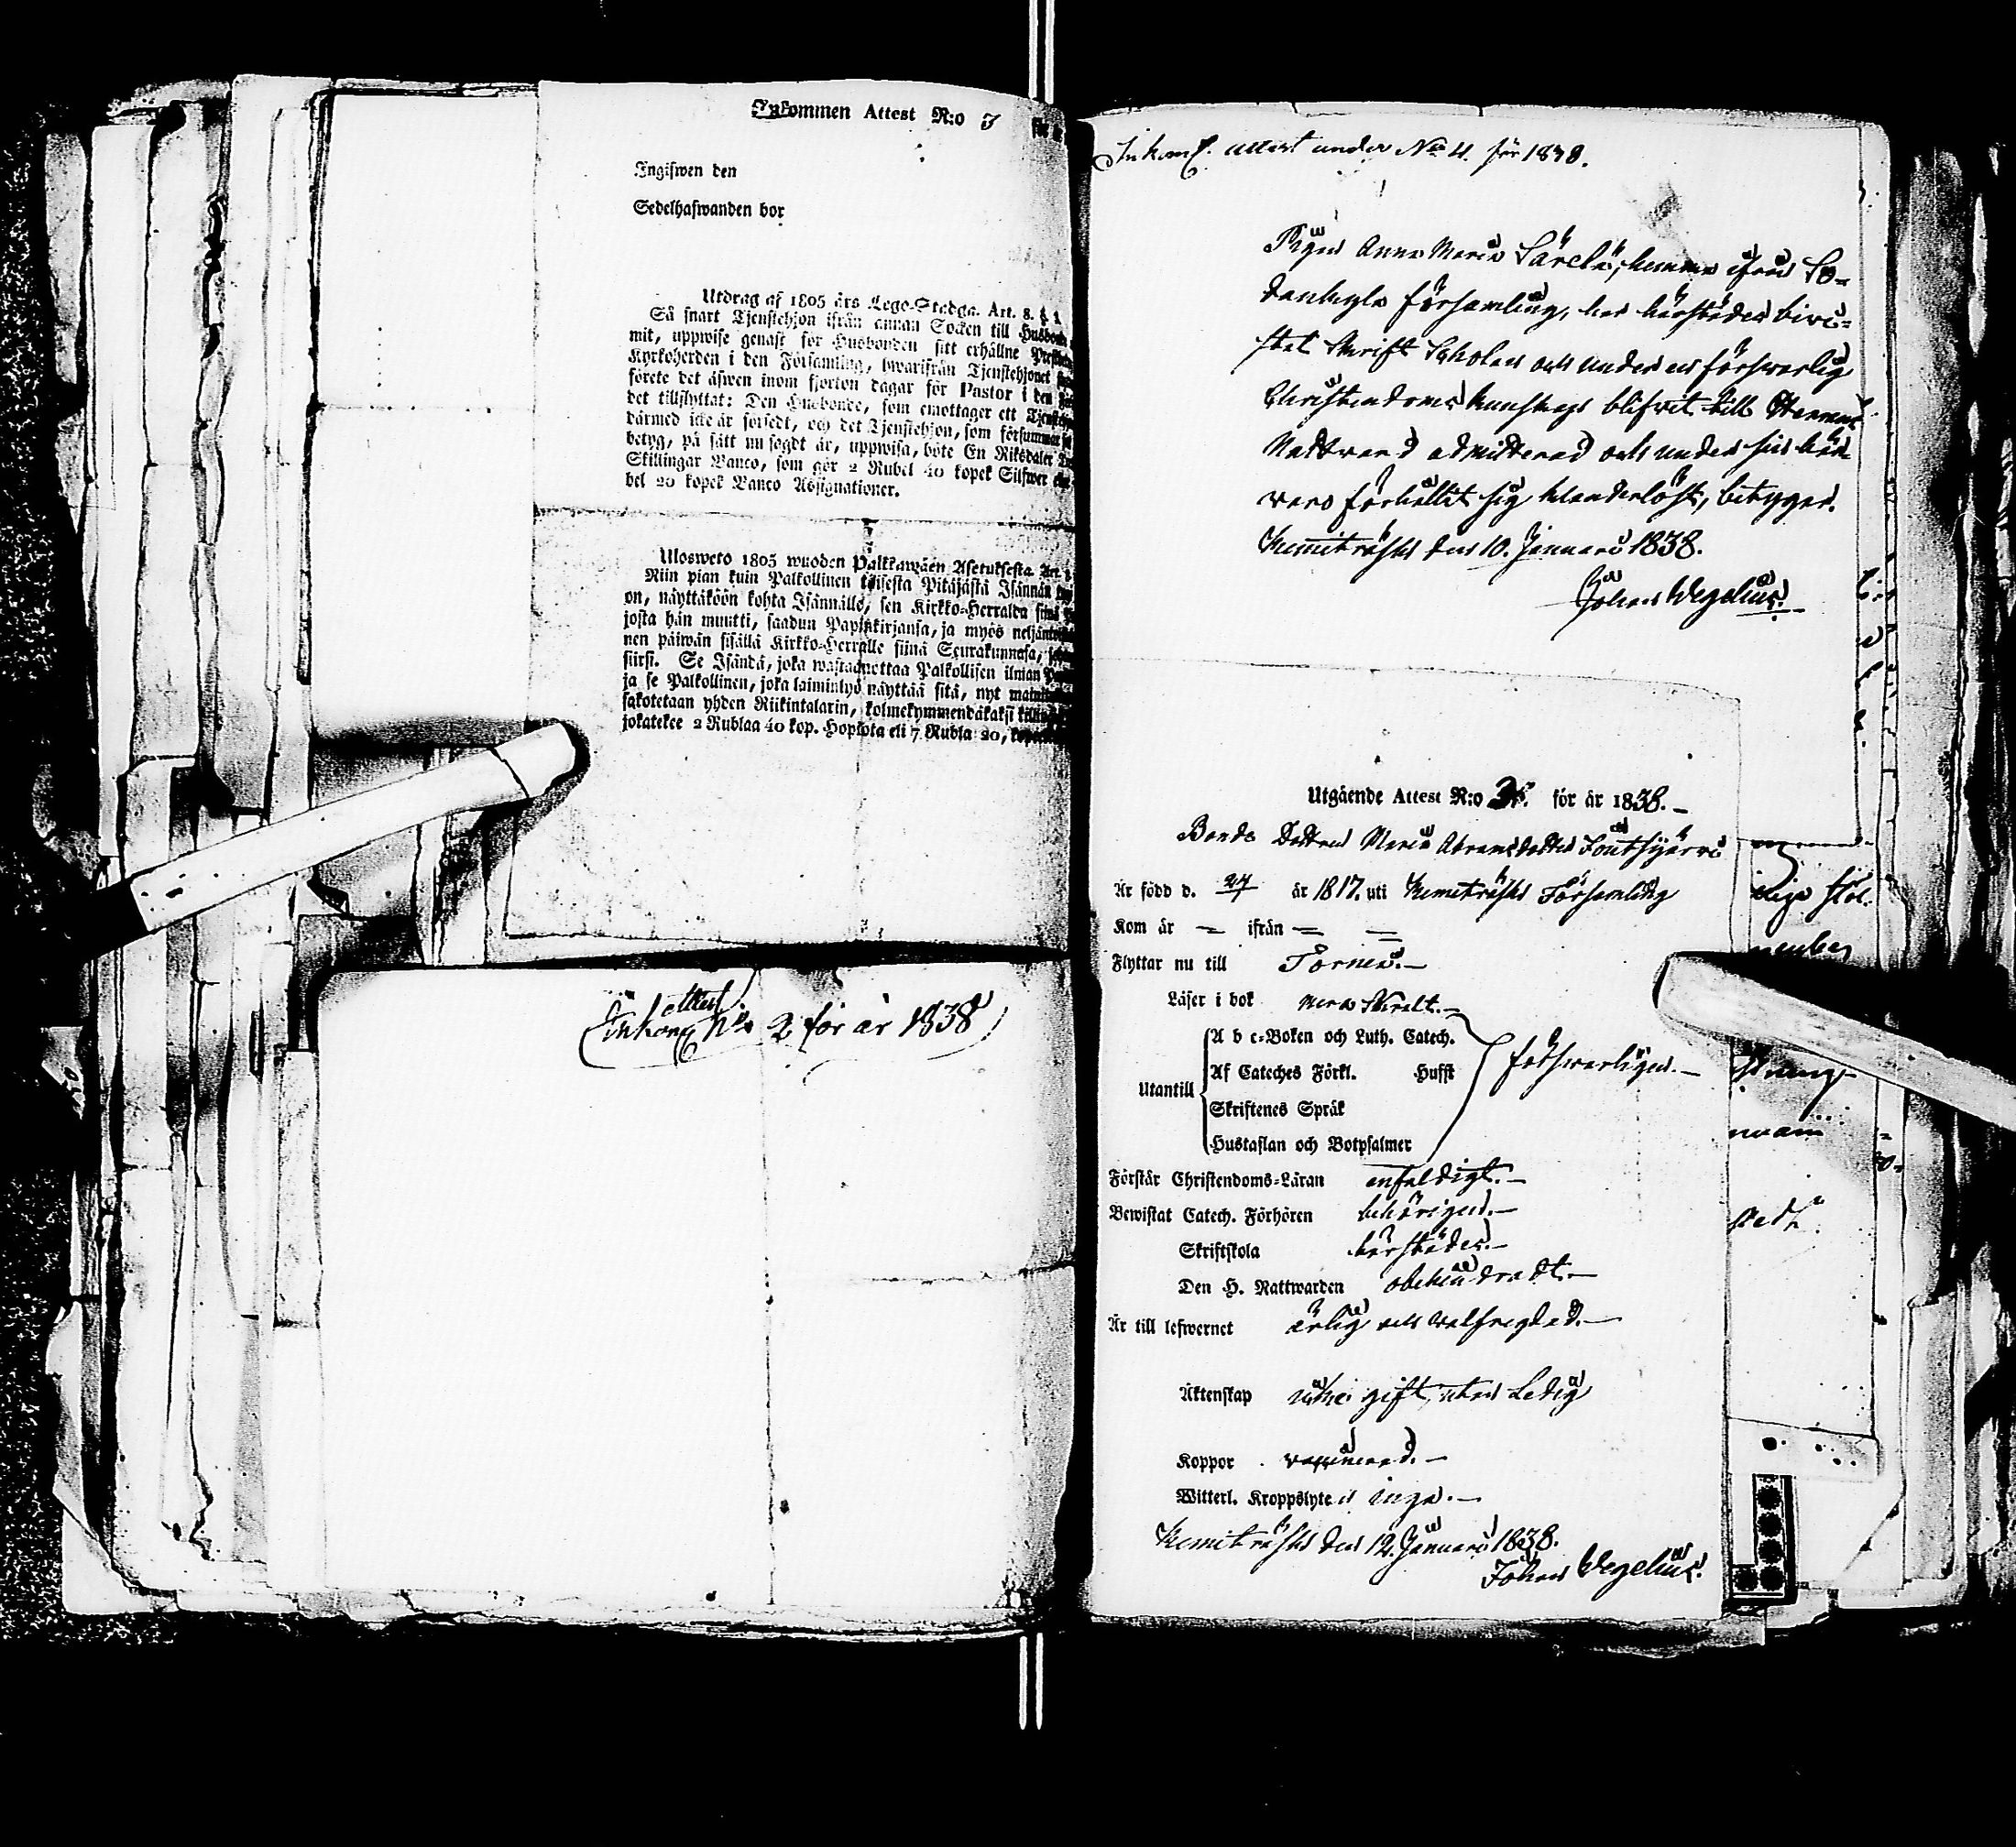 Inkommen Attest N:o 3 för
Ingifwen den
Sedelhafwanden bor
Utdrag af 1805 års Lego-Stadga. Art. 8. §. 1.
Så snart Tjenstehjon ifrån annan Socken till Husbonde
mit, uppwise genast för Husbonden sitt erhållne
Kyrkoherden i den Församling, hwarifrån Tjenstehjonet
förete det äfwen inom fjorton dagar för Pastor i den
det tillflyttat: Den Husbonde, som emottager ett
därmed icke är försedt, och det Tjenstehjon, som försummar
betyg, på sätt nu sagdt är, uppwisa, böte En Riksdaler
Skillingar Banco, som gör 2 Rubel 40 kopek Silfwer
bel 20 kopek Banco Assignationer.
Ulosweto 1805 wuoden Palkkawäen Asetuksesta. Art.
Niin pian kuin Palkollinen toisesta Pitäjästä Isännän
on, näyttäköön kohta Isännälle, sen Kirkko-Herralda siinä
josta hän muutti, saadun Papinkirjansa, ja myös
nen päiwän sisällä Kirkko-Herralle siinä Seurakunnasa,
siirsi. Se Isändä, joka wastaanottaa Palkollisen ilman
ja se Palkollinen, joka laiminlyö näyttää sitä, nyt
sakotetaan yhden Riikintalarin, kolmekymmendäkaksi
jokatekee 2 Rublaa 40 kop. Hopiota eli 7 Rubla 20,
attest
Inkom N:o 2 för år 1838
Inkom. attest under No 4. för 1838.
Pigan Anna Maria Särelä, hemma ifrån So-
dankylä församling, har härstädes bivi-
stat Skrift Scholan och under en förswarlig
Christendoms kunskap blifvit till Herrans
Nattvard admitterad och under sin här-
varo förhållit sig klanderlöst, betygar.
Kemiträsk den 10. Januari 1838.
Johan Wegelius.
Utgående Attest N:o för år 1838.
Bonde Dottren Maria Abramsdotter
Är född d. 27 år 1817. uti Kemiträsks Församling
Kom år — ifrån — —
Flyttar nu till Torneå.
Läser i bok
A b c-Boken och Luth. Catech.
Af Cateches Förkl. Hufft
Utantill förswarligen.
Skriftenes Språk
Hustaflan och Botpsalmer
Förstår Christendoms-Läran enfaldigt.
Bewistat Catech. Förhören behörigen.
Skriftskola härstädes.
Den H. Nattwarden obehindradt.
Är till lefwernet ärlig och wälfregdad.
Äktenskap icke gift, utan Ledig
Koppor vaccinerad.
Witterl. Kroppslyte inga.
Kemiträsk den 12. Januari 1838.
Johan Wegelius.